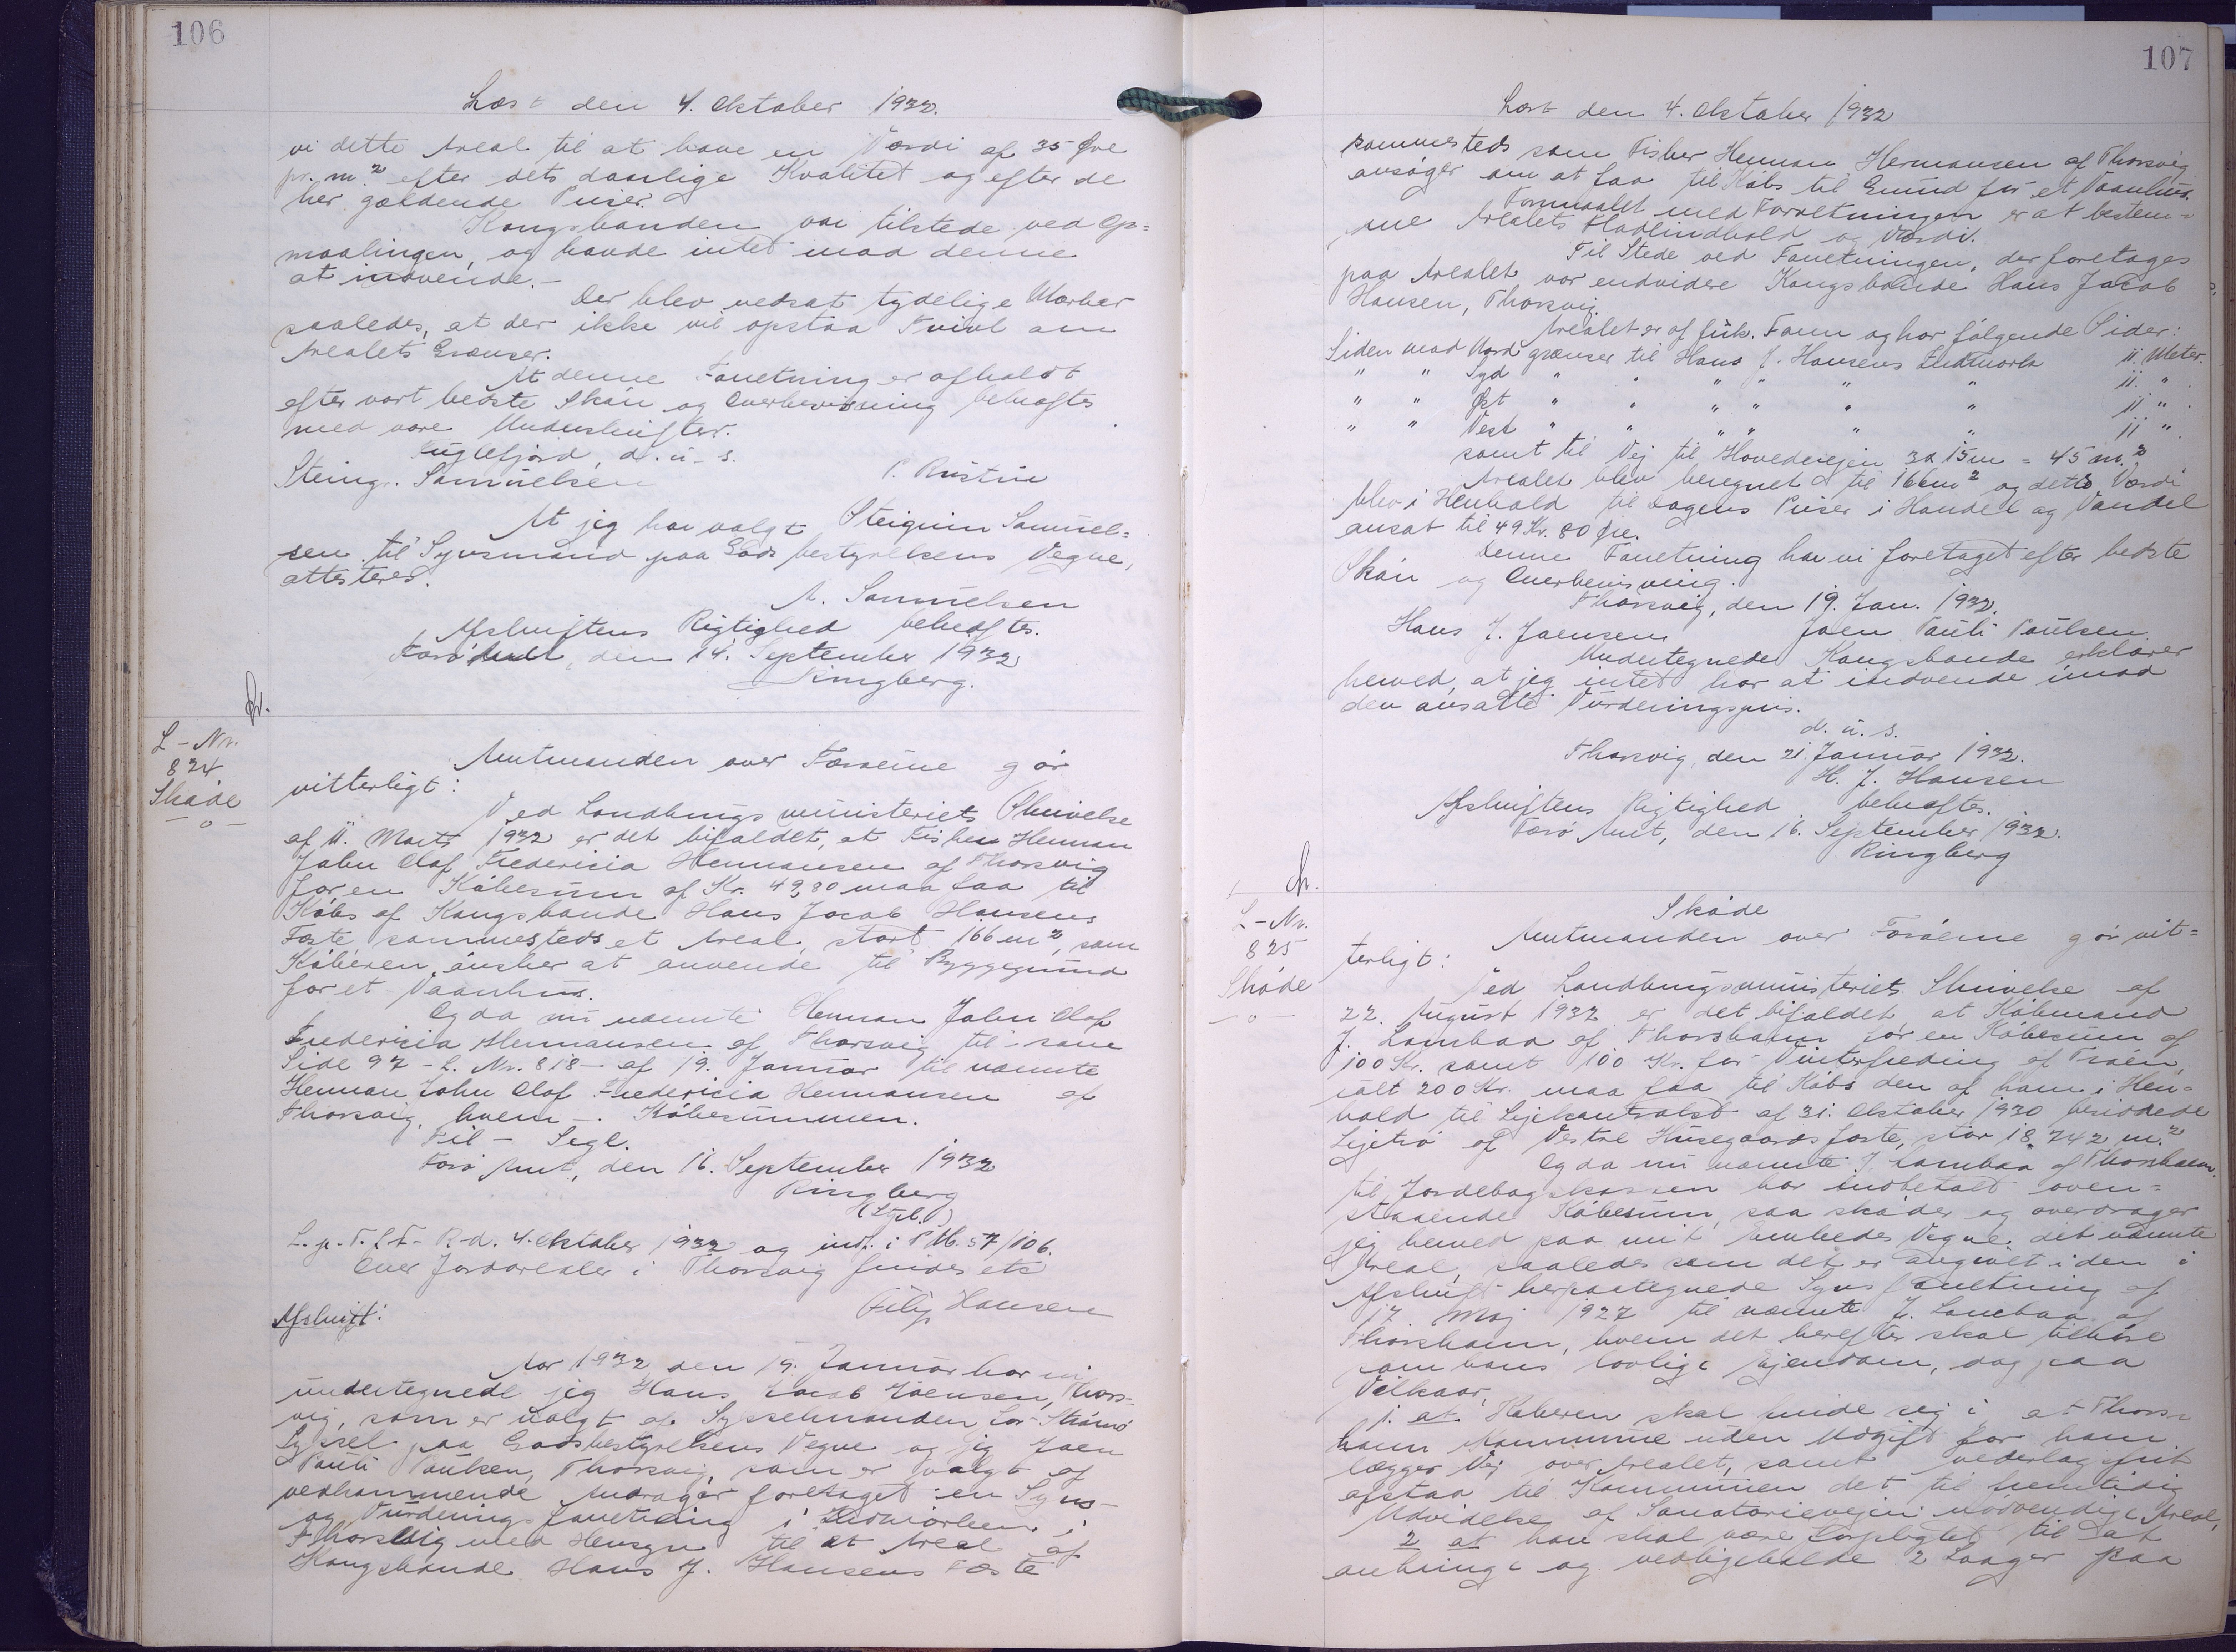 106
Læst den 4. Oktober 1932.
vi dette Areal til at have en Værdi af 35 Øre
pr. m.² efter dets daarlige Kvalitet og efter de
her gældende Priser.
Kongsbonden var tilstede ved Op=
maalingen, og havde intet mod denne
at indvende.-
Der blev nedsat tydelige Mærker
saaledes, at der ikke vil opstaa Tvivl om
Arealets Grænser.
At denne Forretning er afholdt
efter vort bedste Skøn og Overbevisning bekræftes
med vore Underskrifter.
Fuglefjord, d. u. s.
Steingr. Samuelsen
At jeg har valgt Steigrim Samuel=
sen til Synsmand paa Godsbestyrelsens Vegne,
attesteres.
A. Samuelsen
Afskriftens Rigtighed bekræftes.
Færø Amt, den 14. September 1932
Ringberg.
L-Nr.
824
Skøde
-o-
Amtmanden over Færøerne gør
vitterligt:
Ved Landbrugsministeriets Skrivelse
af 11. Marts 1932 er det bifaldet, at Fisker Herman
John Olaf Fredericia Hermansen af Thorsvig
for en Købesum af Kr. 49,80 maa faa til
Købs af Kongsbonde Hans Jacob Hansens
Fæste sammesteds et Areal, stort 166 m², som
Køberen ønsker at anvende til Byggegrund
for et Vaanhus.
Og da nu nævnte Herman John Olaf
Fredericia Hermansen af Thorsvig til - som
Side 97 - L. Nr. 818 - af 19. Januar til nævnte
Herman John Olaf Fredericia Hermansen af
Thorsvig, hvem -. Købesummen.
Til - Segl.
Færø Amt, den 16. September 1932
Ringberg
L. p. T. f. F. R. d. 4. Oktober 1932 og indf. i P M. 57/106.
Over Jordarealer i Thorsvig findes etc
Filip Hansen
Afskrift:
Aar 1932 den 19. Januar har vi
undertegnede jeg Hans Jacob Joensen, Thors-
vig, som er valgt af Sysselmanden for Strømø
Syssel paa Godsbestyrelsens Vegne og jeg Joen
Pauli Poulsen, Thorsvig, som er valgt af
vedkommende Andrager foretaget en Syns-
og Vurderingsforretning i Indmarken i
Thorsvig med Hensyn til et Areal af
Kongsbonde Hans J. Hansens Fæste
107
Læst den 4. Oktober 1932
sammesteds som Fisker Herman Hermansen af Thorsvig
ansøger om at faa til Købs til Grund for et Vaanhus.
Formaalet med Forretningen er at bestem=
me Arealets Fladeindhold og Værdi.
Til Stede ved Forretningen, der foretages
paa Arealet var endvidere Kongsbonde Hans Jacob
Hansen, Thorsvig.
Arealet er af firk. Form og har følgende Sider:
Siden mod Nord grænser til Hans J. Hansens Indmark 11 Meter.
" " Syd " " " " " " 11 " .
" " Øst " " " " " " 11 " .
" " Vest " " " " " " 11 " .
samt til Vej til Hovedvejen 3 x 15 m = 45 m.²
Arealet blev beregnet til 166 m² og dets Værdi
blev i Henhold til Dagens Priser i Handel og Vandel
ansat til 49 Kr. 80 Øre.
Denne Forretning har vi foretaget efter bedste
Skøn og Overbevisning.
Thorsvig, den 19. Jan. 1932.
Hans J. Joensen Joen Pauli Poulsen.
Undertegnede Kongsbonde erklærer
herved, at jeg intet har at indvende imod
den ansatte Vurderingspris.
d. u. s.
Thorsvig, den 21. Januar 1932.
H. J. Hansen
Afskriftens Rigtighed bekræftes.
Færø Amt, den 16. September 1932.
Ringberg
L-Nr.
825
Skøde
-o-
Skøde
Amtmanden over Færøerne gør vit=
terligt:
Ved Landbrugsministeriets Skrivelse af
22. August 1932 er det bifaldet at Købmand
J. Lambaa af Thorshavn for en Købesum af
100 Kr. samt 100 Kr. for Vinterfredning af Trøen,
ialt 200 Kr. maa faa til Købs den af ham i Hen=
hold til Lejekontrakt af 31. Oktober 1930 besiddede
Lejetrø af Vestre Husegaardsfæste, stor 18.742 m.²
Og da nu nævnte J. Lambaa af Thorshavn
til Jordebogskassen har indbetalt oven=
staaende Købesum, saa skøder og overdrager
jeg herved paa mit Embedes Vegne det nævnte
Areal, saaledes som det er angivet i den i
Afskrift herpaategnede Synsforretning af
17. Maj 1927 til nævnte J. Lambaa af
Thorshavn, hvem det herefter skal tilhøre
som hans lovlige Ejendom, dog paa
Vilkaar,
1. at Køberen skal finde sig i at Thors=
havn Kommune uden Udgift for ham
lægger Vej over Arealet, samt vederlagsfrit
afstaa til Kommunen det til fremtidig
Udvidelse af Sanatorievejen nødvendige Areal,
2 at han skal være forpligtet til at
anbringe og vedligeholde 2 Laager paa